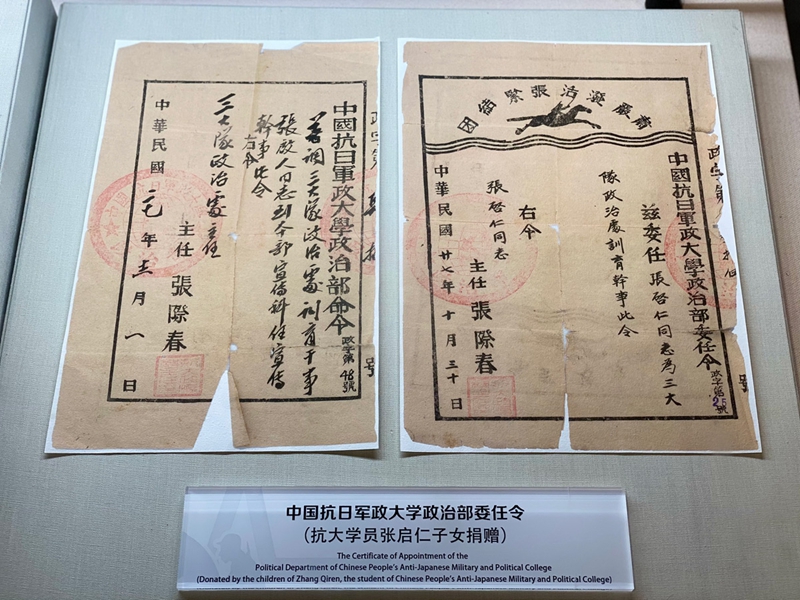 政字第
號
中國抗日軍政大學政治部命令
政字第48號
茲調三大隊政治處訓育干事
張啟人同志到本部宣傳科任宣傳
幹事此令
右令
三大隊政治處主任
主任 張際春
中華民國二七年十二月一日
团結緊張活潑嚴肅
政字第
號
中國抗日軍政大學政治部委任令
政字第25號
茲委任張啓仁同志為三大
隊政治處訓育幹事此令
右令
張啓仁同志
主任 張際春
中華民國廿七年十月三十日
中国抗日军政大学政治部委任令
（抗大学员张启仁子女捐赠）
The Certificate of Appointment of the
Political Department of Chinese People's Anti-Japanese Military and Political College
(Donated by the children of Zhang Qiren, the student of Chinese People's Anti-Japanese Military and Political College)